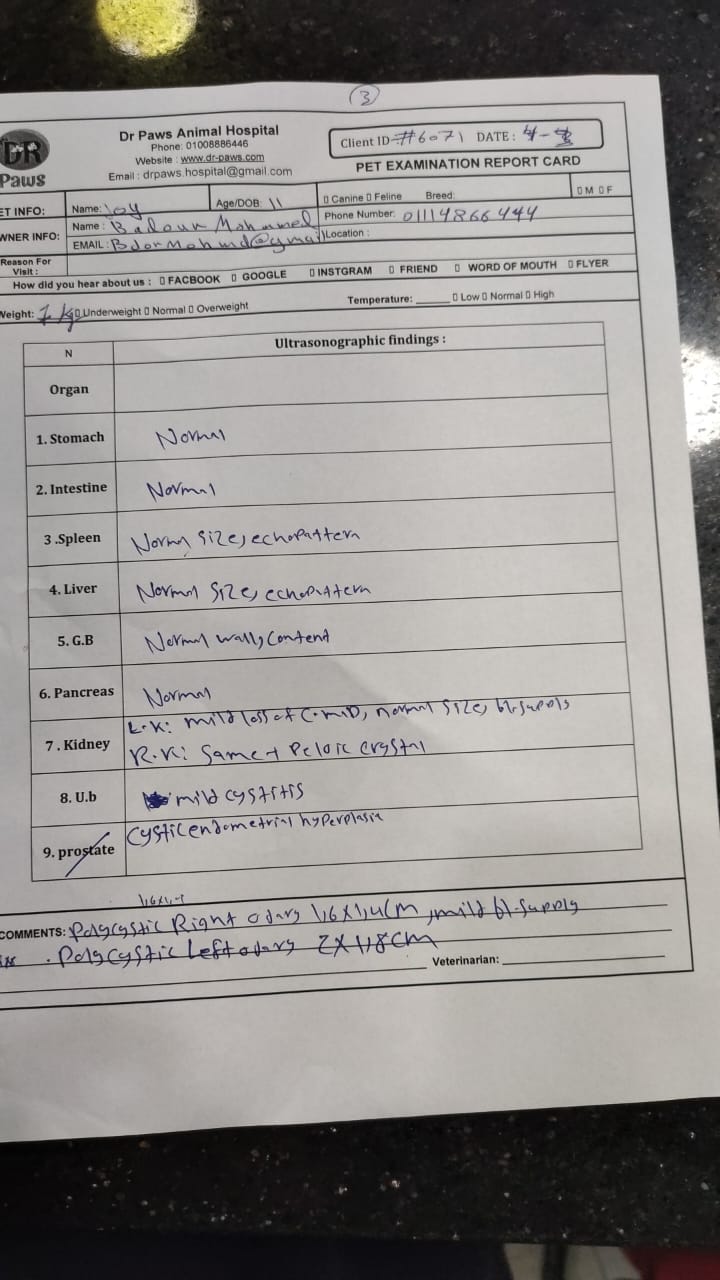 3
DR
Paws
Dr Paws Animal Hospital
Phone: 01008886446
Website : www.dr-paws.com
Email : drpaws.hospital@gmail.com
Client ID #6071 DATE: 4-
PET EXAMINATION REPORT CARD
ET INFO: Name: Joy Age/DOB: 11 Canine Feline Breed: M F
WNER INFO: Name : Mohamed Phone Number: 01114866444
EMAIL : Location :
Reason For
Visit :
How did you hear about us : FACBOOK GOOGLE INSTGRAM FRIEND WORD OF MOUTH FLYER
Weight: 7 kg Underweight Normal Overweight Temperature: ______ Low Normal High
N Ultrasonographic findings :
Organ
1. Stomach Normal
2. Intestine Normal
3 .Spleen Normal size, echopattern
4. Liver Normal size, echopattern
5. G.B Normal wall, content
6. Pancreas Normal
7 . Kidney L.K: mild loss of C.M.D, normal size, bl.supply
R.K: Same + Pelvic crystal
8. U.b mild cystitis
9. prostate Cystic endometrial hyperplasia
COMMENTS: Polycystic Right ovary 1,6x1,4cm, mild bl.supply
. Polycystic Left ovary 2x1,8cm
Veterinarian: